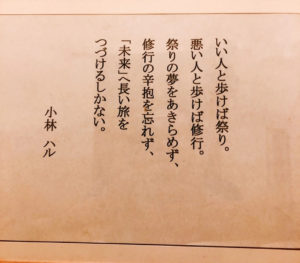 いい人と歩けば祭り。
悪い人と歩けば修行。
祭りの夢をあきらめず、
修行の辛抱を忘れず、
「未来」へ長い旅を
つづけるしかない。
小林 ハル